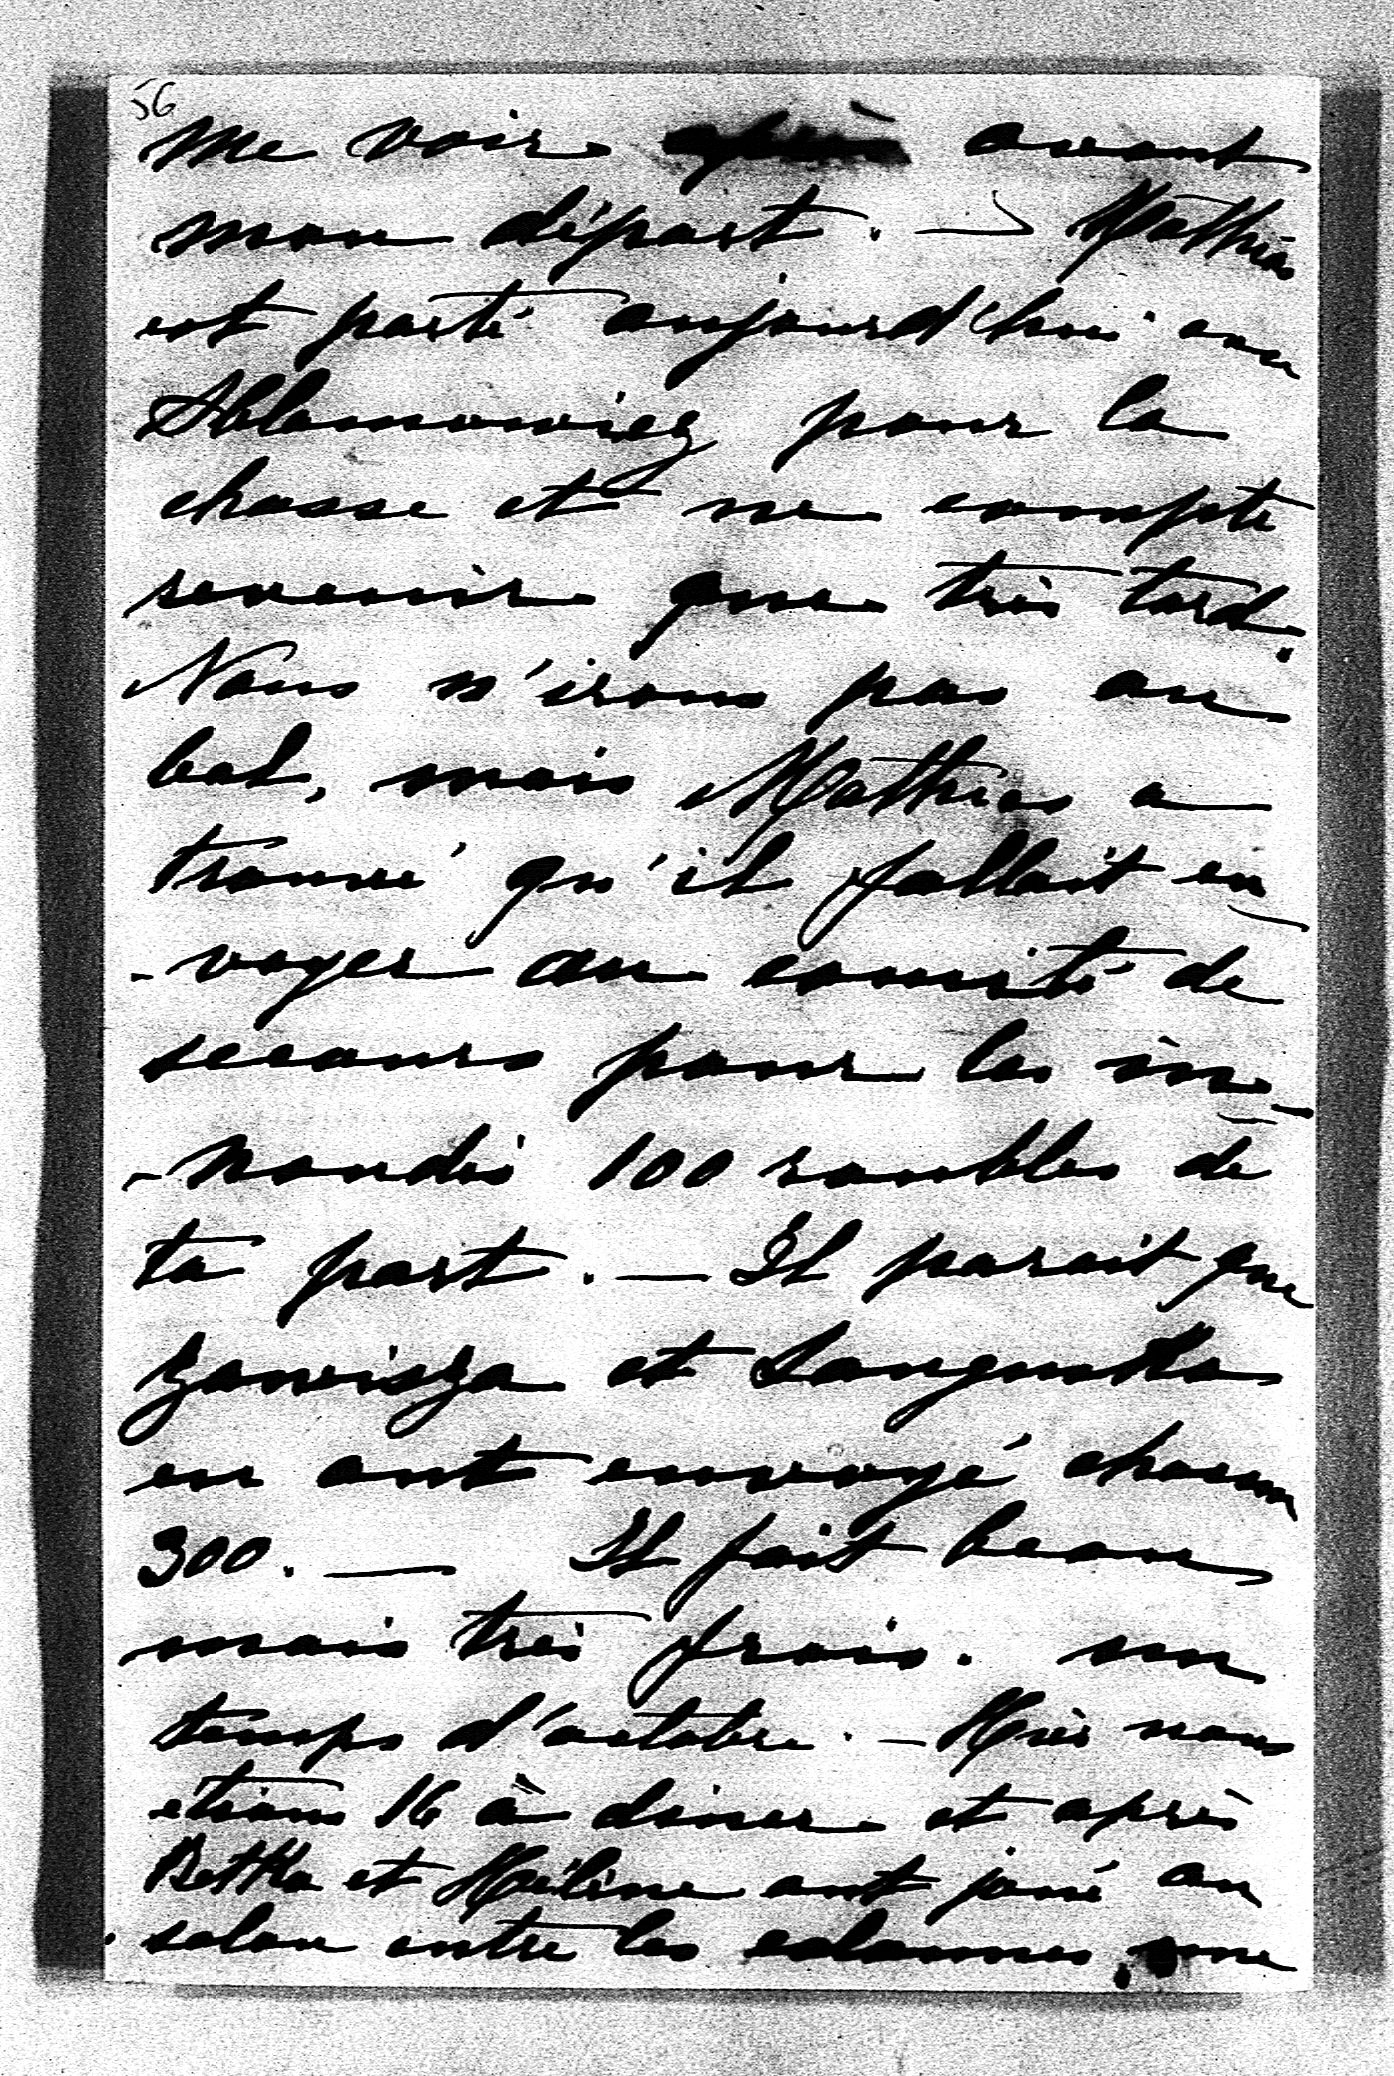 56
me voir avant
mon départ. — Mathias
est parti aujourd'hui avec
pour la
chasse et ne compte
revenir que très tard.
Nous n'irons pas au
bal, mais Mathias a
trouvé qu'il fallait en
- voyer au comité de
secours pour les in
- nondés 100 roubles de
ta part. — Il parait que
Zawisza et Sanguszko
en ont envoyé chacun
300. — Il fait beau
mais très frais. un
temps d'octobre. — Hier nous
étions 16 à diner et après
Betka et Hélène ont joué au
salon entre les colonnes, une